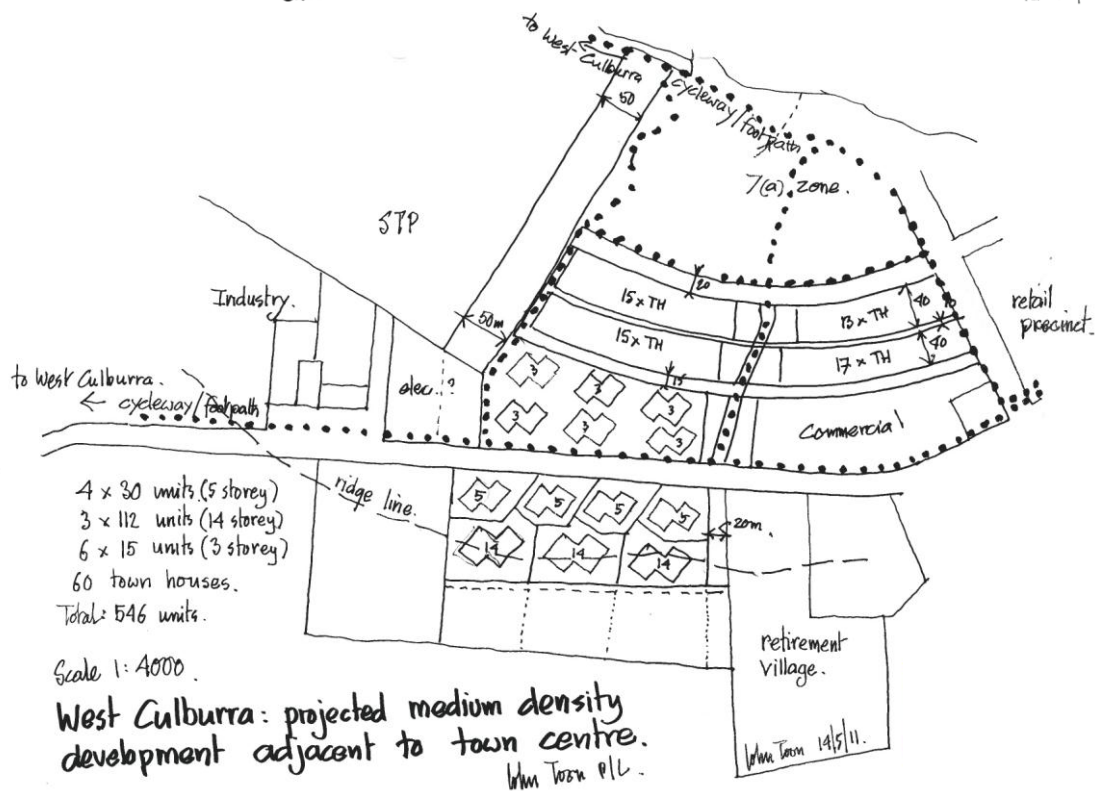 to West
Culburra
50
cycleway/footpath
7(a) zone.
STP
20
Industry.
15 x TH
13 x TH
40
10
retail
precinct.
50m
15 x TH
17 x TH
40
to West Culburra.
← cycleway/footpath
elec. ?
3
3
15
3
3
3
3
Commercial
ridge line.
5
5
5
5
20m.
14
14
14
4 x 30 units (5 storey)
3 x 112 units (14 storey)
6 x 15 units (3 storey)
60 town houses.
Total: 546 units.
Scale 1:4000.
retirement
village.
West Culburra: projected medium density
development adjacent to town centre.
John Toon P/L.
John Toon 14/5/11.